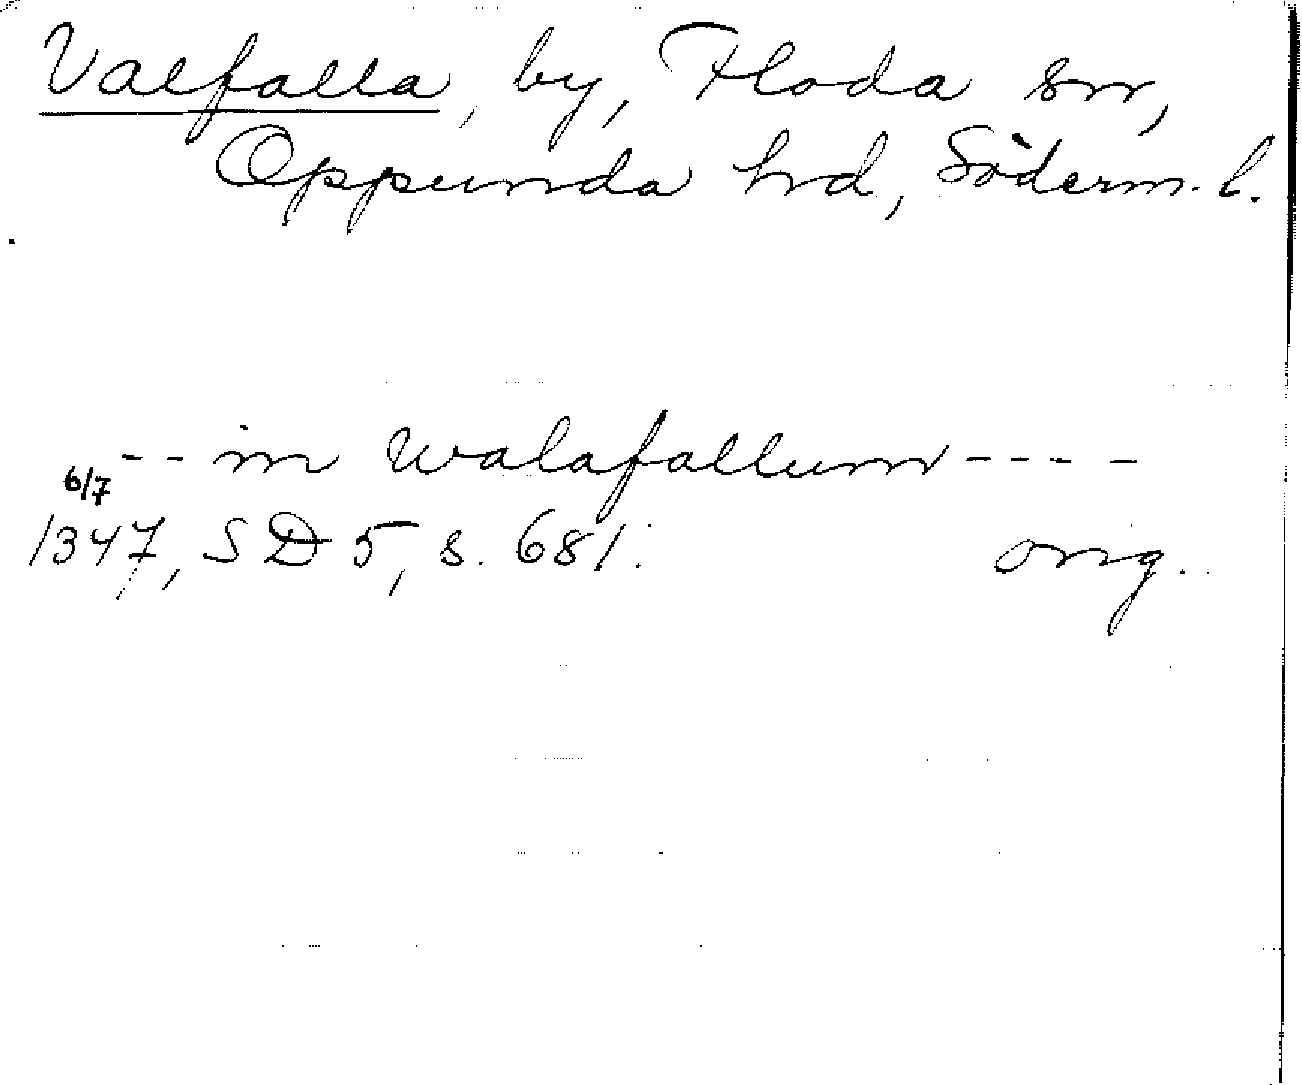 Valfalla, by, Floda sn,
Oppunda hd, Söderm. l.
-- in walafallum ----
6/7
1347, SD 5, s. 681. orig.